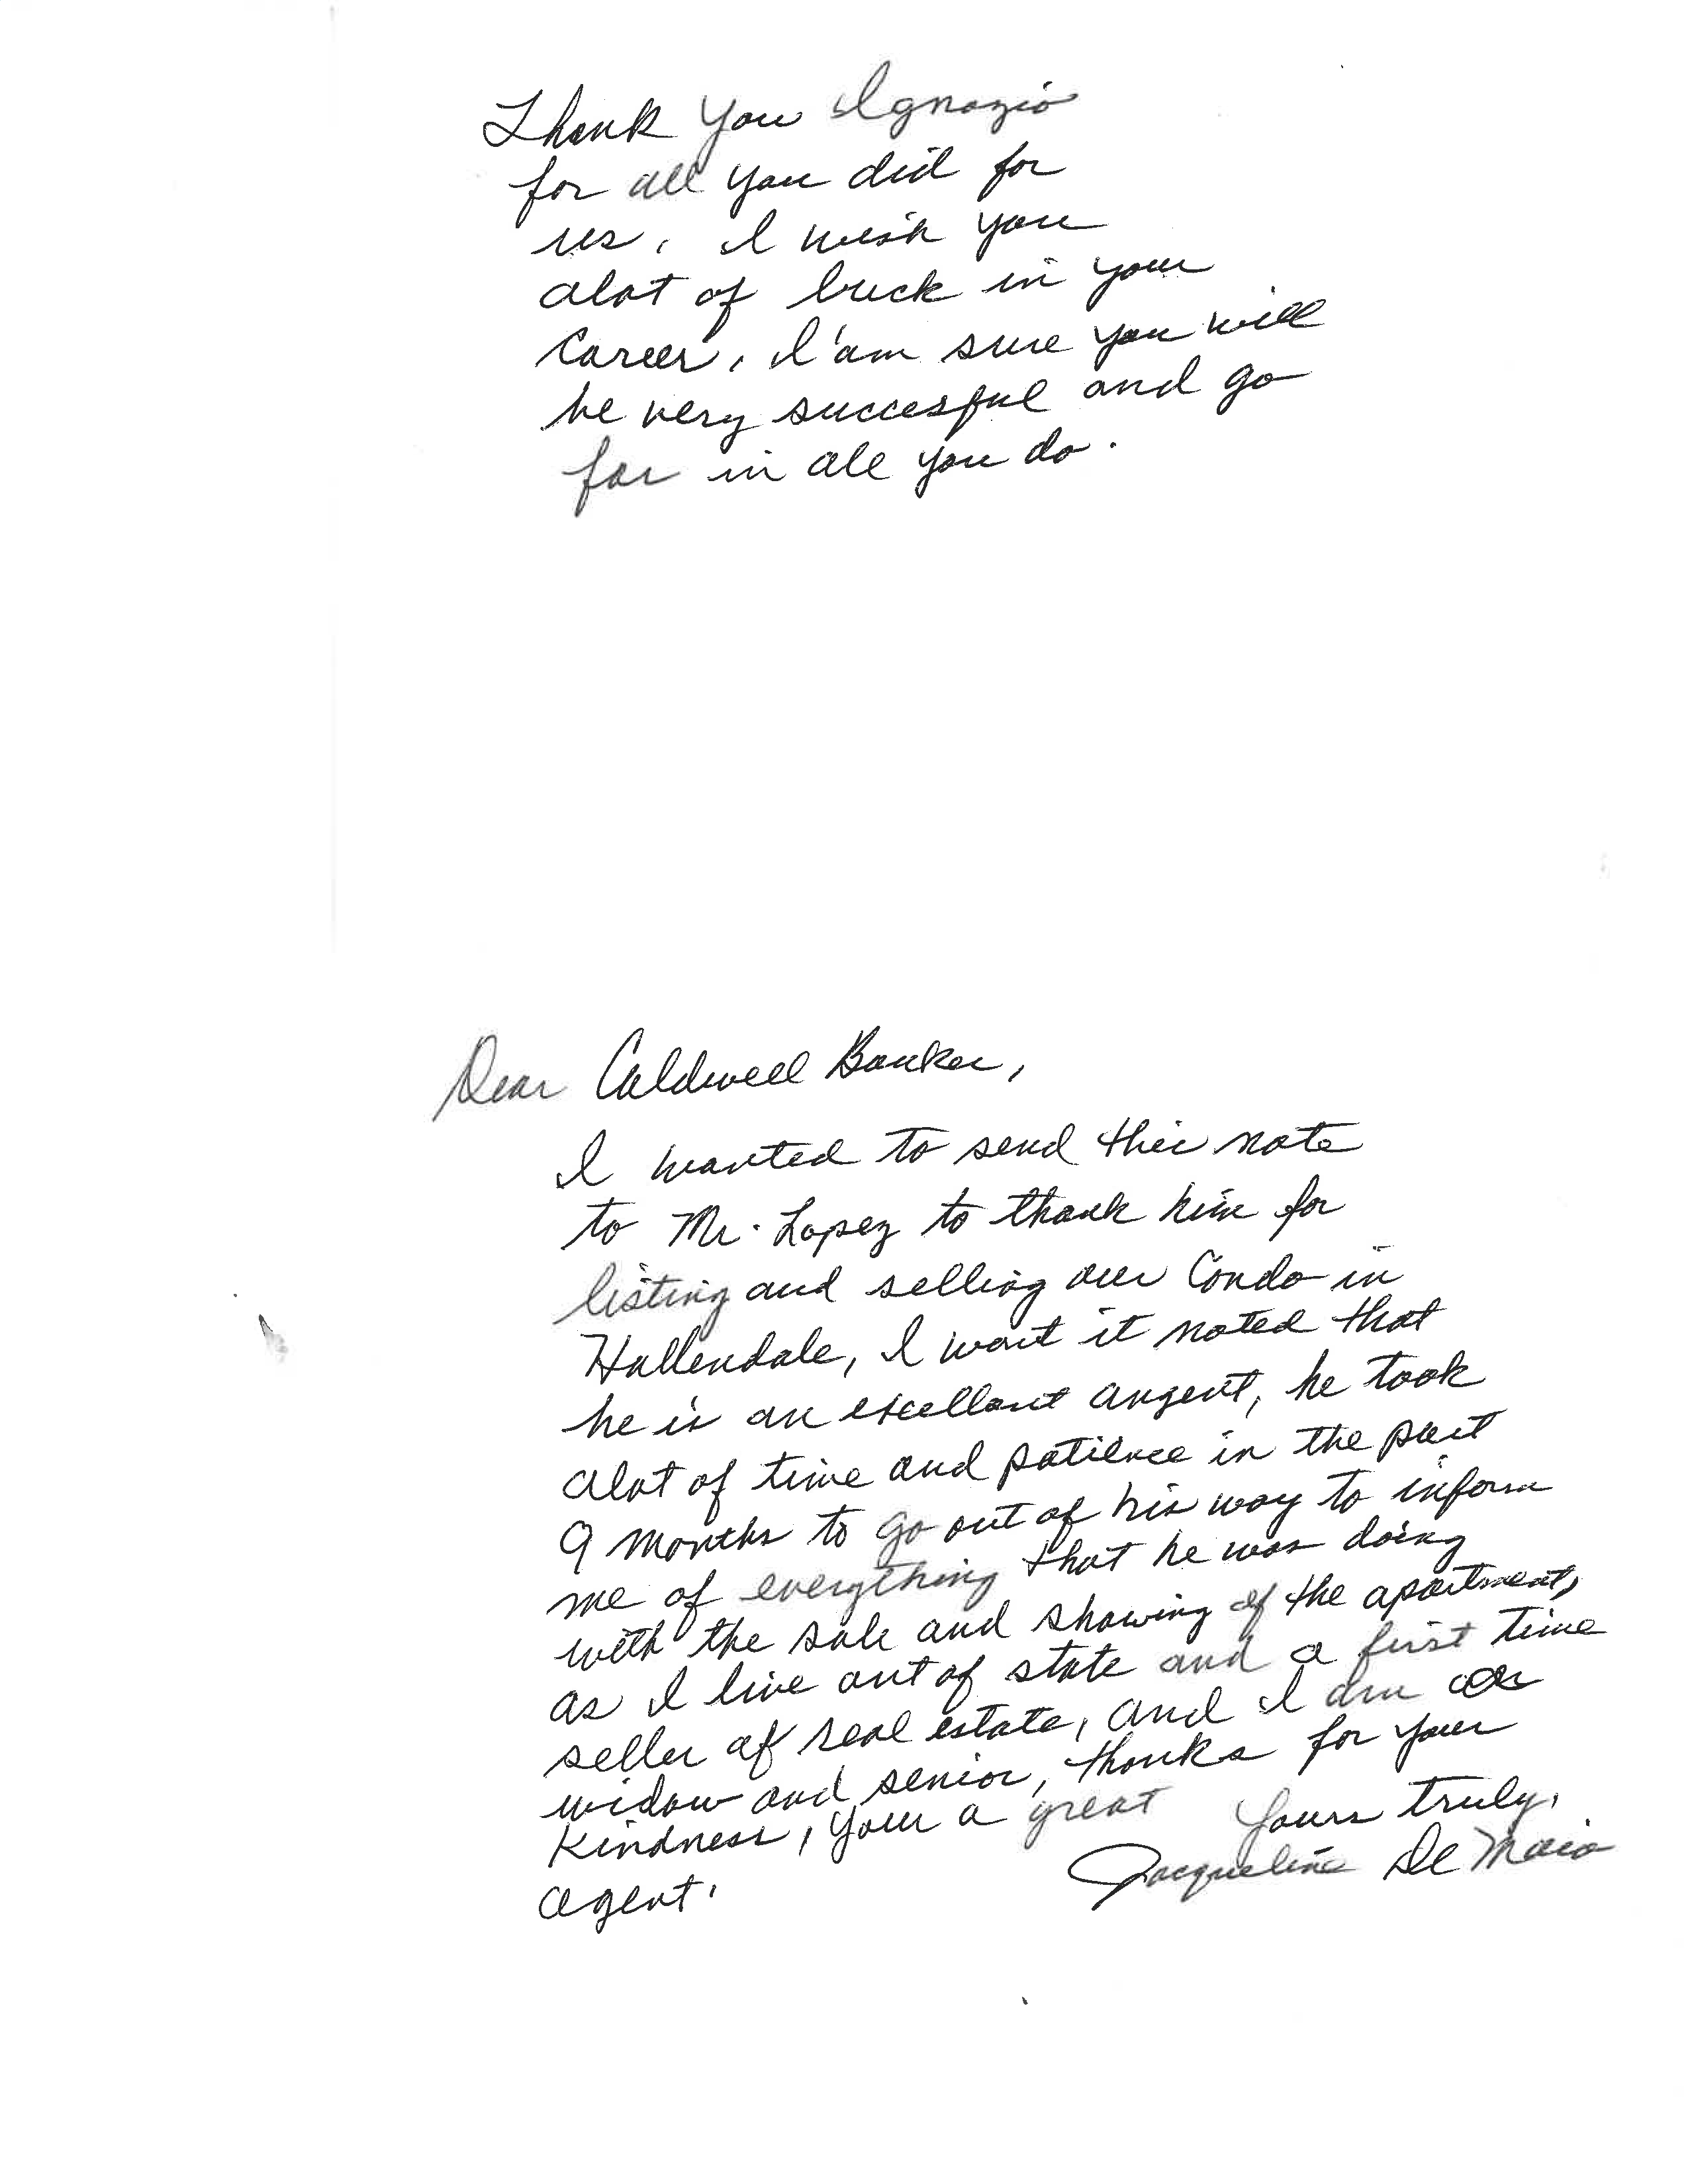 Thank You Ignazio
for all you did for
us. I wish you
alot of luck in your
Career, I'am sure you will
be very succesful and go
far in all you do.
Dear Caldwell Banker,
I wanted to send this note
to Mr. Lopez to thank him for
listing and selling our Condo in
Hallendale, I want it noted that
he is an excellant angent, he took
alot of time and patience in the past
9 months to go out of his way to inform
me of everything that he was doing
with the sale and showing of the apartment,
as I live out of state and a first time
seller of real estate, and I am a
widow and senior, thanks for your
Kindness, your a great
agent.
Yours truly,
Jacqueline De Maio